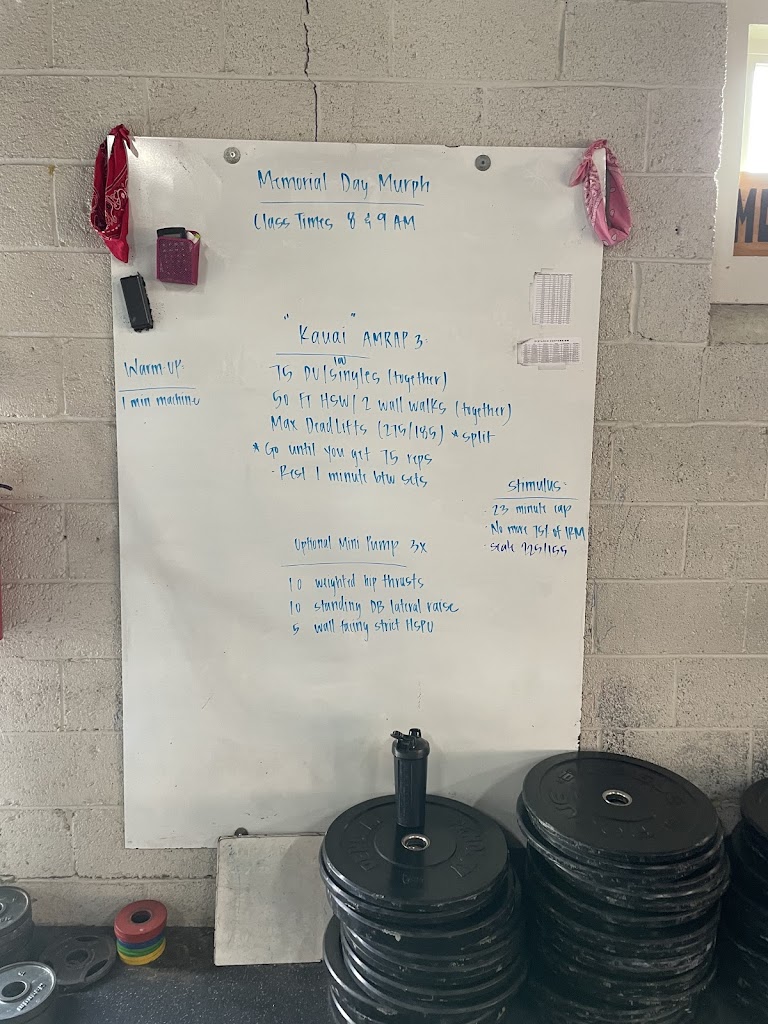 Memorial Day Murph
Class Times 8 & 9 AM
"Kauai" AMRAP 3:
100
75 DU/Singles (together)
50 FT HSW/2 wall walks (together)
Max Deadlifts (275/185) *split
*Go until you get 75 reps
- Rest 1 minute btw sets
Warm-up:
1 min machine
Stimulus:
- 23 minute cap
- No more 75% of 1RM
- scale 225/155
Optional Mini Pump 3x
10 weighted hip thrusts
10 standing DB lateral raise
5 wall facing strict HSPU